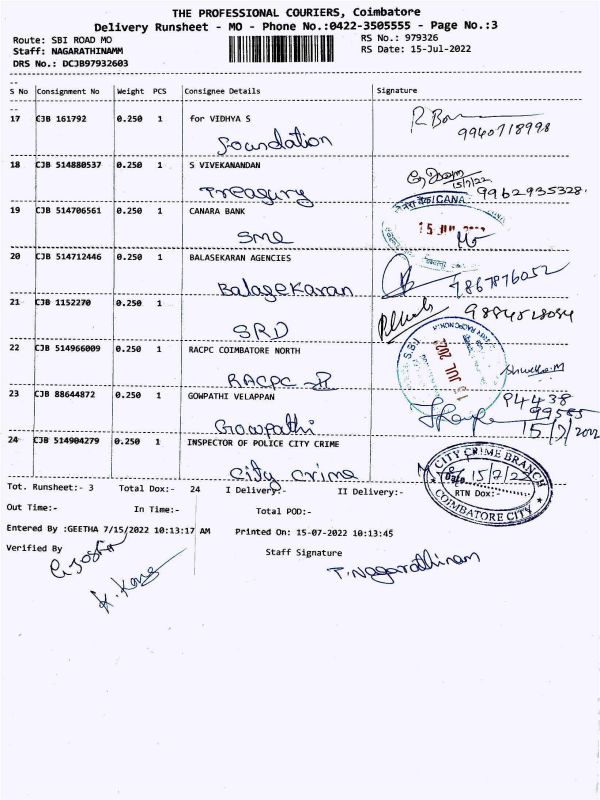 THE PROFESSIONAL COURIERS, Coimbatore
Delivery Runsheet - MO - Phone No.:0422-3505555 - Page No.:3
Route: SBI ROAD MO
RS No.: 979326
Staff: NAGARATHINAMM
RS Date: 15-Jul-2022
DRS No.: DCJB97932603
S No Consignment No Weight PCS Consignee Details Signature
17 CJB 161792 0.250 1 for VIDHYA S
Foundation
9940718998
18 CJB 514880537 0.250 1 S VIVEKANANDAN
Treasury
15/7/22
9962935328.
19 CJB 514706561 0.250 1 CANARA BANK
SME
CANA
20 CJB 514712446 0.250 1 BALASEKARAN AGENCIES
Balasekaran
9867876052
21 CJB 1152270 0.250 1
SRD
22 CJB 514966009 0.250 1 RACPC COIMBATORE NORTH
RACPC
JUL 202
23 CJB 88644872 0.250 1 GOWPATHI VELAPPAN
Gowpathi
94438
99585
15/7/2022
24 CJB 514904279 0.250 1 INSPECTOR OF POLICE CITY CRIME
City Crime
CITY CRIME BRANCH
15/7/22
COIMBATORE CITY
Tot. Runsheet:- 3 Total Dox:- 24 I Delivery:- II Delivery:- RTN Dox:-
Out Time:- In Time:- Total POD:-
Entered By :GEETHA 7/15/2022 10:13:17 AM Printed On: 15-07-2022 10:13:45
Verified By Staff Signature
T.Nagarathinam